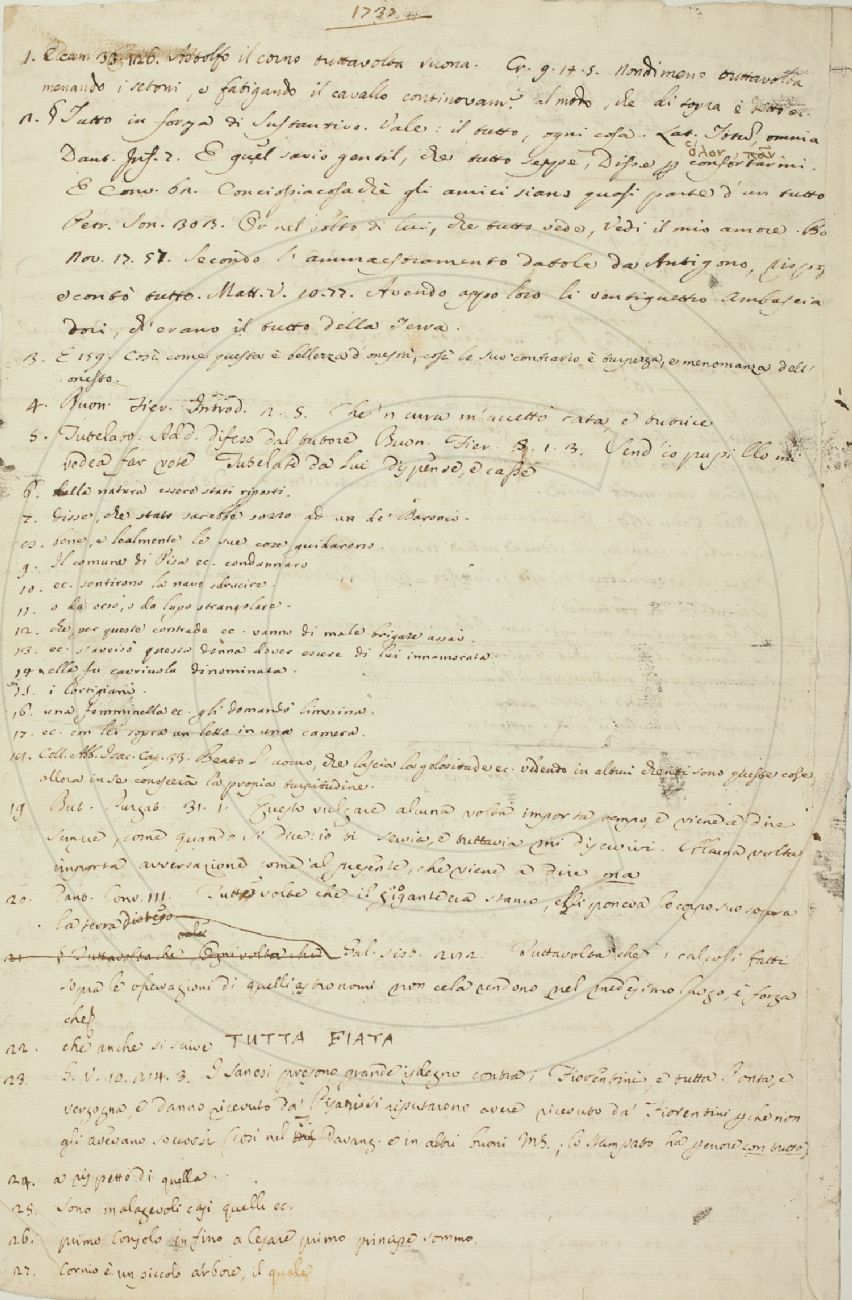 1737.
1. 33. 126. Astolfo il corno tuttavolta suona. Cr. 9. 17. 5. Nondimeno tuttavolta
menando i setoni, e fatigando il cavallo continovam.e al modo, che di sopra è detto ec.
2. § Tutto in forza di Sustantivo. Vale: il tutto, ogni cosa. Lat. omnia
ὅλον πᾶν
Dant. Inf. 7. E quel savio gentil, che tutto seppe, Disse p confortarmi.
E Conv. 62. Conciossiacosachè gli amici siano quasi parte d'un tutto
Petr. Son. 303. Or nel volto di lui, che tutto vede, Vedi il mio amore. Bo
Nov. 17. 57. Secondo l'ammaestramento datole da Antigono, rispose
e contò tutto. Matt. V. 10. 77. Avendo appo loro li ventiquattro Ambascia
dori, ch'erano il tutto della Terra.
3. E 159. Così come questa è bellezza d'onestà, così lo suo contrario è turpezza, e menomanza dell'
onesto.
4. Buon. Fier. Introd. 2. 5. Che 'n cura m'accettò tata, e tutrice
5. Tutelato. Add. difeso dal tutore Buon. Fier. 1. 3. Send'io pupillo mi
vedea far vote Tutelate da lui dispense, e casse
6. dalla natura essere stati riposti.
7. disse, che stato sarebbe sozzo ad un de' Baronci.
8. bene, e lealmente le sue cose guidarono.
9. Il comune di Pisa ec. condannaro
10. ec. sentirono la nave sdrucire.
11. o da orso, o da lupo strangolare.
12. che per queste contrade ec. vanno di male brigate assai.
13. ec. s'avvisò questa donna dover essere di lui innamorata.
14. ella fu cavriuola dinominata.
15. i cortigiani.
16. una femminella ec. gli domandò limosina.
17. ec. con lei sopra un letto in una camera.
18. Coll. Abb. Isac. Cap. 33. Beato l'uomo, che lascia la golositade ec. vedendo in altrui che sono queste cose,
allora in se conoscerà la propia turpitudine.
19. But. Purgab. 31. 1. Questo vulgare alcuna volta importa tempo, e viene a dire
sempre, come quando si dice: io ti servia, e tuttavia mi diservivi. Alcuna volta
importa avversazione come al presente, che viene a dire ma
20. Dant. Conv. III. Tutte volte che il gigante era stanco, elli poneva lo capo suo sopra
la terra
21. § Tuttavolta che Ogni volta che Gal. sist. 272. Tuttavolta che i calcoli fatti
sopra le operazioni di quelli astronomi non cela rendono nel medesimo luogo, è forza
che
22. che anche si scrive TUTTA FIATA
23. G. V. 10. 214. 3. I Sanesi presono grande isdegno contra i Fiorentini, e tutta l'onta, e
vergogna, e danno ricevuto da' Pisani si riputarono avere ricevuto da' Fiorentini p che non
gli avevano soccorsi (così nel Davanz. e in altri buoni MS., lo stampato ha per con tutto)
24. a rispetto di quella.
25. sono malagevoli casi quelli ec.
26. primo Consolo in fino a Cesare primo principe sommo.
27. Cornio è un piccolo arbore, il quale